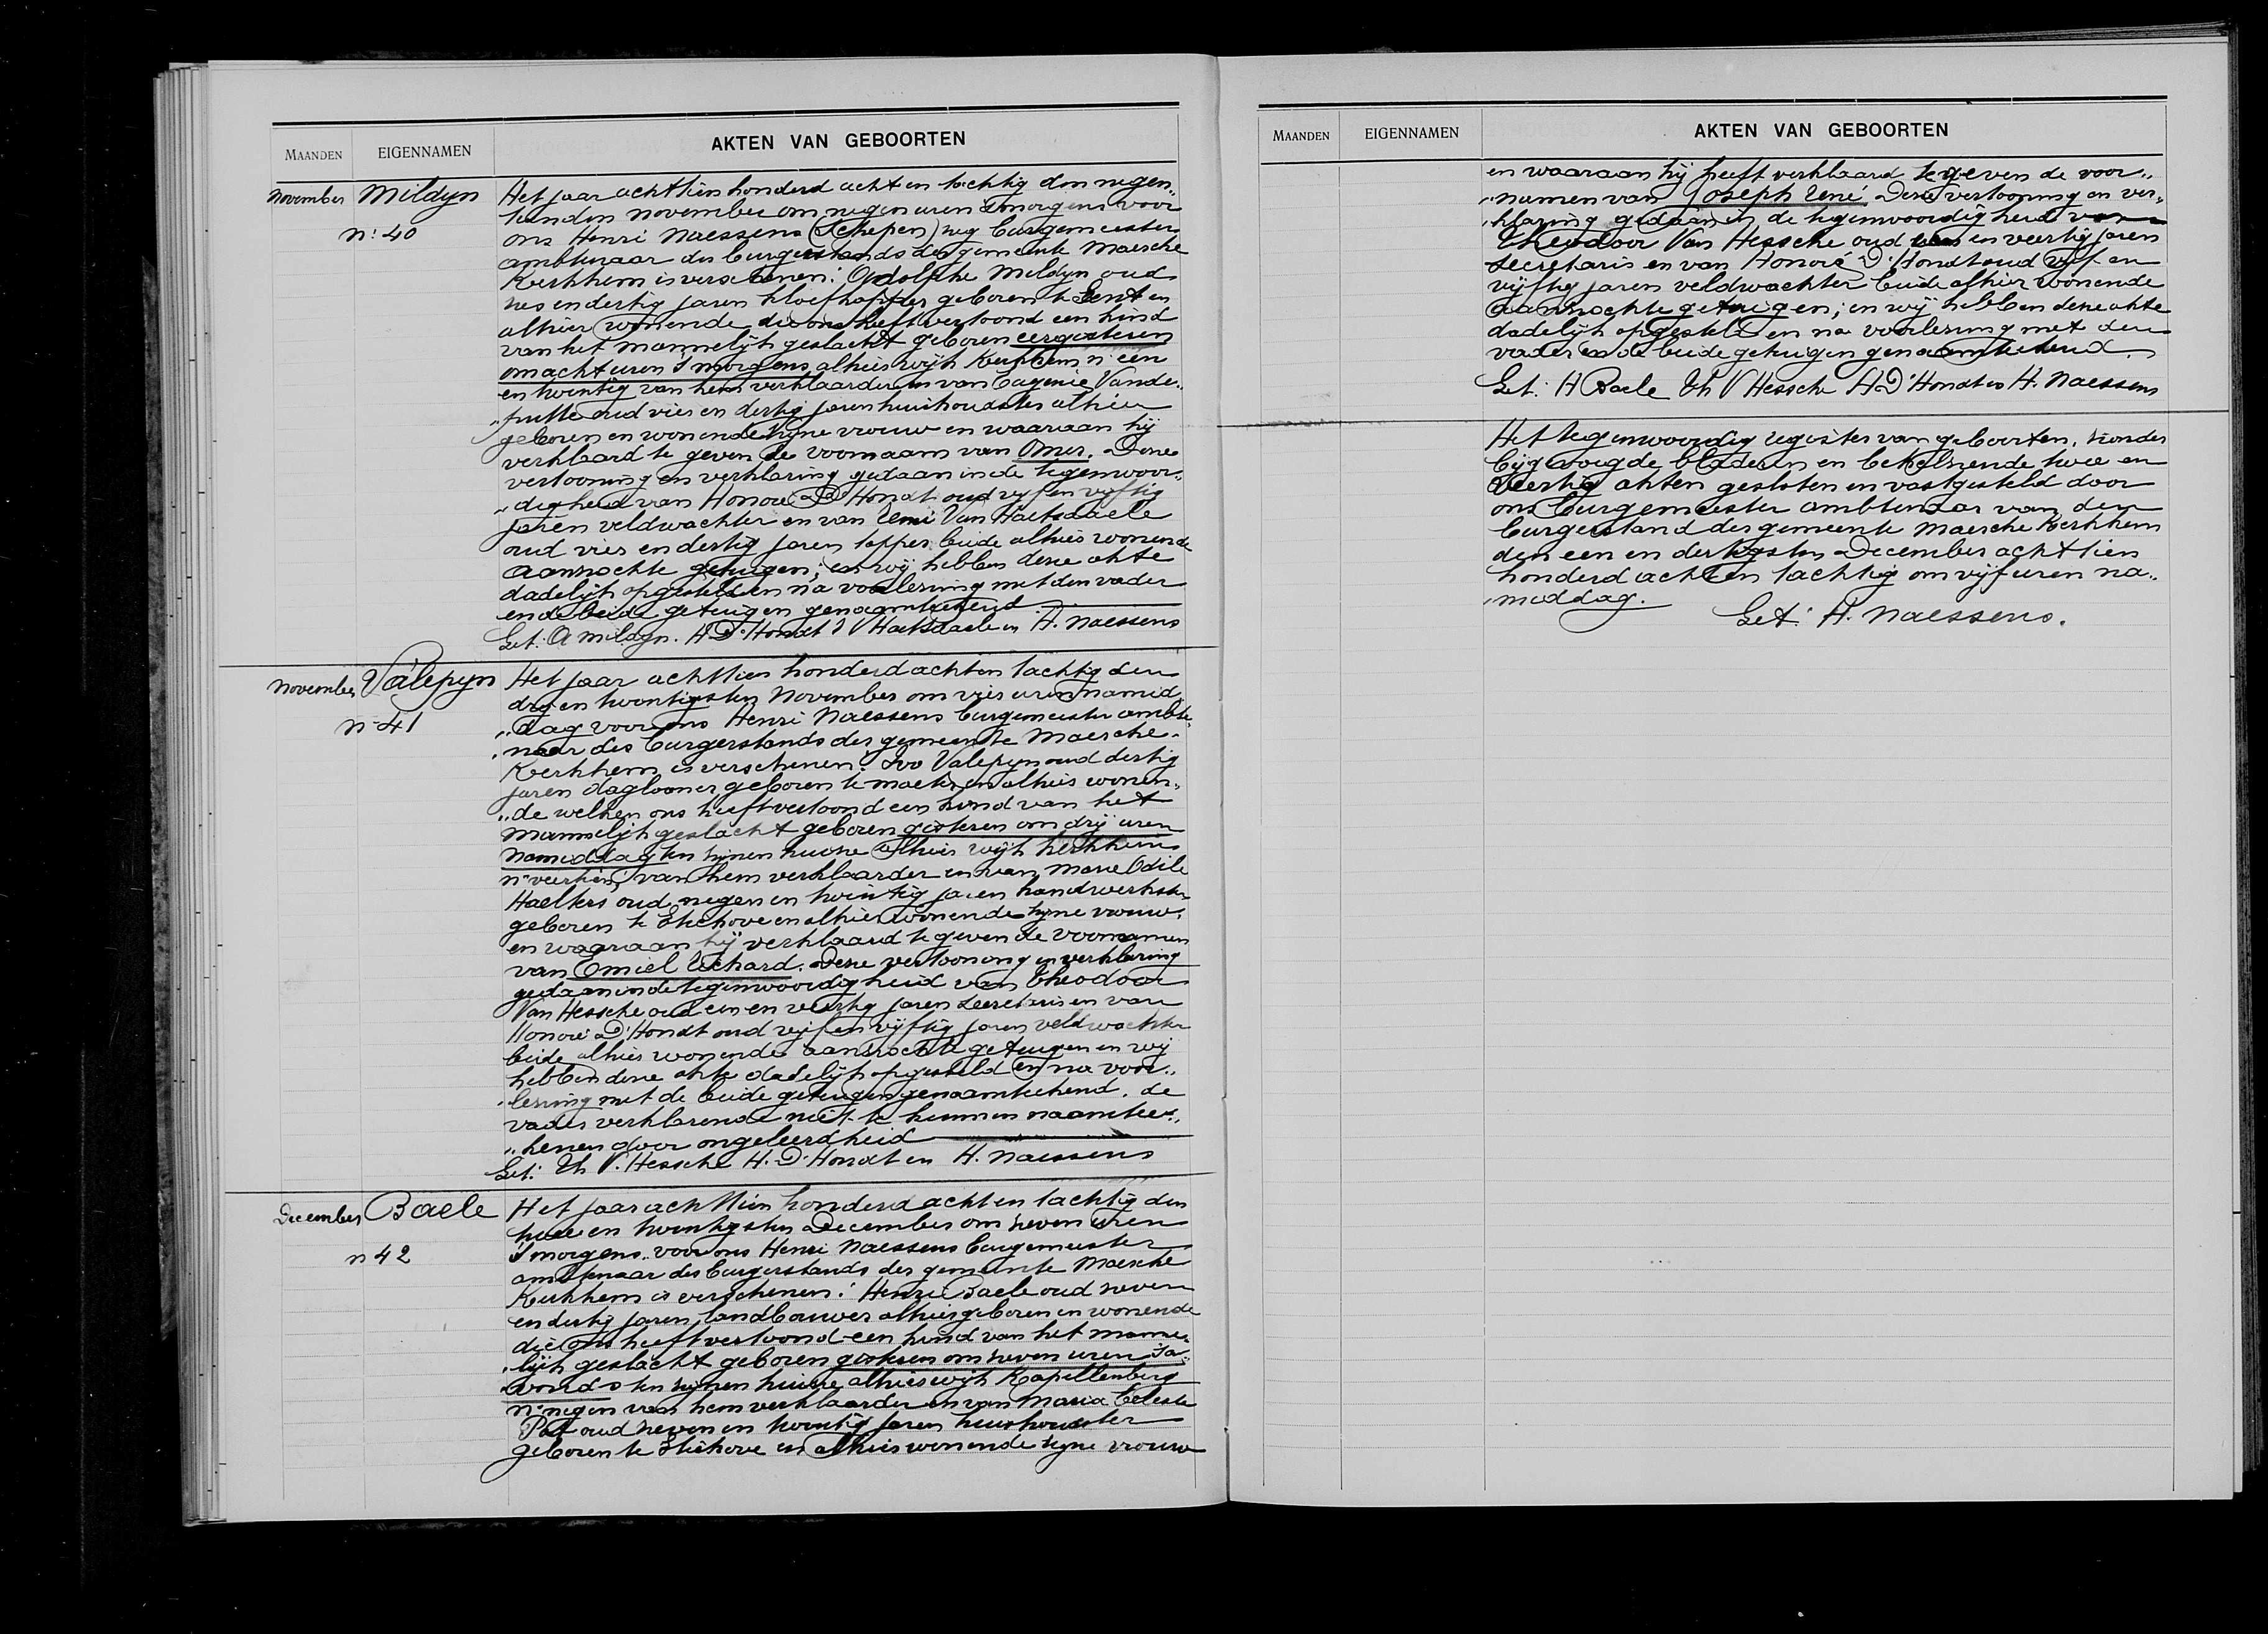 MAANDEN EIGENNAMEN AKTEN VAN GEBOORTEN
November Mildyn
No 40
Het jaar achttien honderd acht en tachtig den negen„
tienden november om negen uren smorgens voor
ons Henri Naessens (Schepen) weg Burgemeester
ambtenaar des burgerstands der gemeente Maercke
Kerkhem is verschenen: Adolphe Mildyn oud
zes en dertig jaren geboren te Gent en
alhier wonende die ons heeft vertoond een kind
van het mannelijk geslacht geboren eergisteren
om acht uren 's morgens alhier wijk Kerkhem n: een
en twintig van hem verklaarder en van Eugenie Vande„
„putte oud vier en dertig jaren huishoudster alhier
geboren en wonende zijne vrouw en waaraan hij
verklaard te geven de voornaam van Omer. Deze
vertooning en verklaring gedaan in de tegenwoor„
„digheid van Honoré D'Hondt oud vijf en vijftig
jaren veldwachter en van Remi Van Haetsdaele
oud vier en dertig jaren tapper beide alhier wonende
aanzochte getuigen; en wij hebben deze akte
dadelijk opgesteld en na voorlezing met den vader
en de beide getuigen genaamteekend
Get: A Mildyn. H D'Hondt R V Haetsdaele en H. Naessens
November Valepyn
n° 41
Het jaar achttien honderd acht en tachtig den
dry en twintigsten November om vier uren namid„
„dag voor ons Henri Naessens burgemeester ambte„
„naar des burgerstands der gemeente Maercke
Kerkhem is verschenen: Ivo Valepyn oud dertig
jaren daglooner geboren te Mater en alhier wonen„
„de welken ons heeft vertoond een kind van het
mannelijk geslacht geboren gisteren om drij uren
namiddag ten zijnen huize alhier wijk Kerkhem
n° veertien, van hem verklaarder en van Marie Odile
Haelters oud negen en twintig jaren handwerkster
geboren te Etichove en alhier wonende zijne vrouw.
en waaraan hij verklaard te geven de voornamen
van Emiel Richard. Deze vertooning en verklaring
gedaan in de tegenwoordigheid van Theodoor
Van Hessche oud een en veertig jaren secretaris en van
Honoré D'Hondt oud vijf en vijftig jaren veldwachter
beide alhier wonende aanzochte getuigen en wij
hebben deze akte dadelijk opgesteld en na voor„
„lezing met de beide getuigen genaamteekend. de
vader verklarende niet te kunnen naamtee„
„kenen door ongeleerdheid
Get: Th V. Hessche H. D'Hondt en H. Naessens
December Baele
n 42
Het jaar achttien honderd acht en tachtig den
twee en twintigsten December om zeven uren
's morgens voor ons Henri Naessens burgemeester
ambtenaar des burgerstands der gemeente Maercke
Kerkhem is verschenen: Henri Baele oud zeven
en dertig jaren, landbouwer alhier geboren en wonende
die ons heeft vertoond een kind van het manne„
„lijk geslacht geboren gisteren om zeven uren sa„
„vonds ten zijnen huize alhier wijk Kapellenberg
n° negen van hem verklaarder en van Maria Celeste
Pot oud zeven en twintig jaren huishoudster
geboren te Etichove en alhier wonende zijne vrouw
MAANDEN EIGENNAMEN AKTEN VAN GEBOORTEN
en waaraan hij heeft verklaard te geven de voor„
„namen van Joseph René. Deze vertooning en ver„
„klaring gedaan in de tegenwoordigheid van
Theodoor Van Hessche oud een en veertig jaren
secretaris en van Honoré D'Hondt oud vijf en
vijftig jaren veldwachter beide alhier wonende
aanzochte getuigen; en wij hebben deze akte
dadelijk opgesteld en na voorlezing met den
vader en de beide getuigen genaamteekend.
Get: H Baele Th V Hessche H D'Hondt en H. Naessens
Het tegenwoordig register van geboorten, zonder
bijgevoegde bladeren en behelzende twee en
veertig akten gesloten en vastgesteld door
ons burgemeester ambtenaar van den
burgerstand der gemeente Maercke Kerkhem
den een en dertigsten December achttien
honderd acht en tachtig om vijf uren na„
„middag.
Get: H. Naessens.